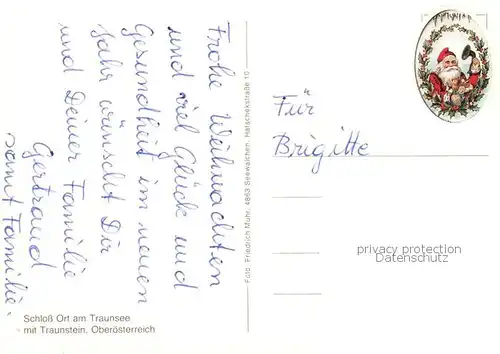 Frohe Weihnachten
und viel Glück und
Gesundheit im neuen
Jahr wünscht Dir
und Deiner Familie
Gertraud
samt Familie.
Schloß Ort am Traunsee
mit Traunstein, Oberösterreich
Foto: Friedrich Muhr, 4863 Seewalchen, Hatschekstraße 10
Für
Brigitte
privacy protection
Datenschutz